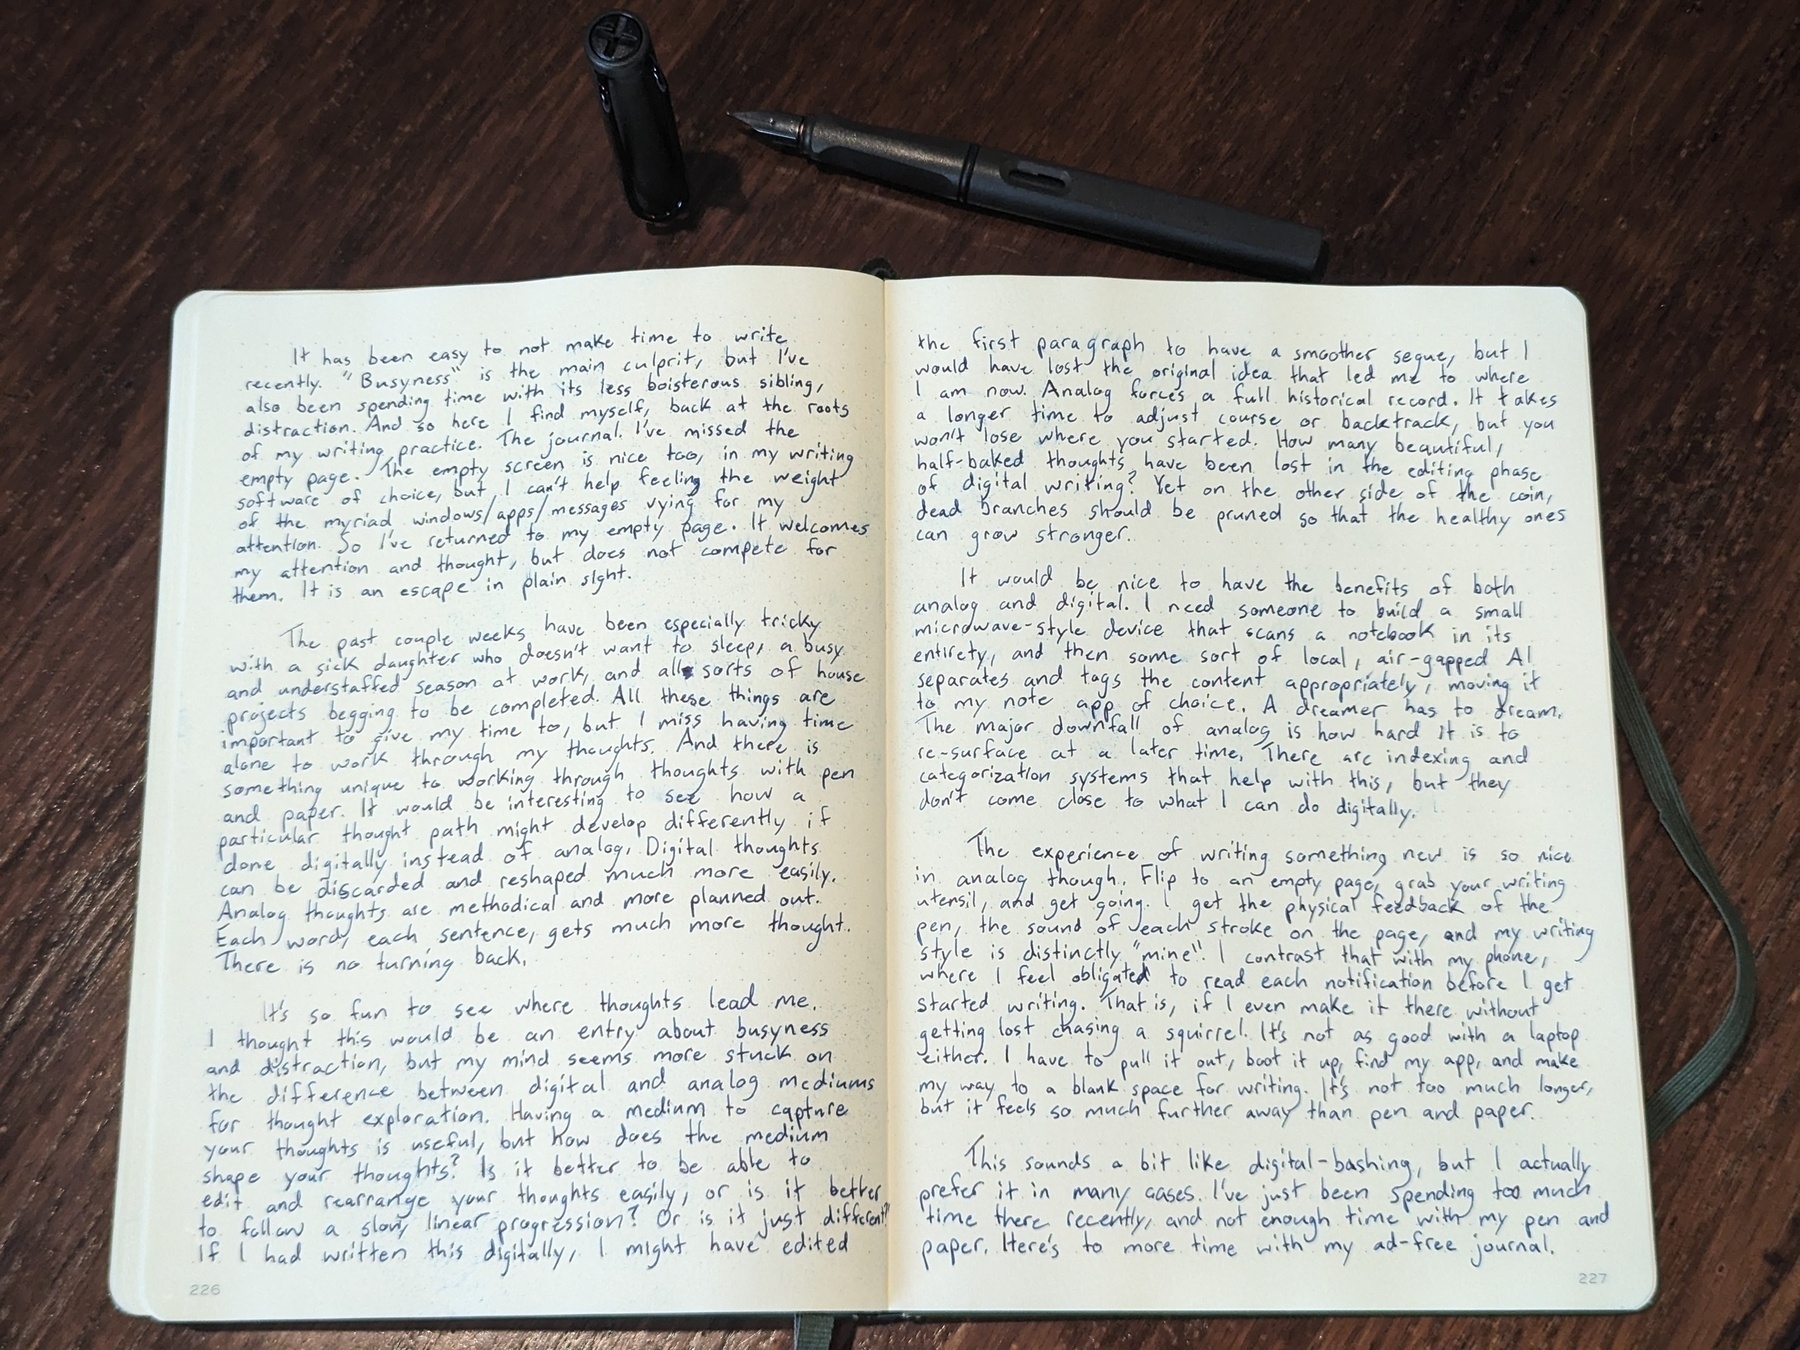 It has been easy to not make time to write
recently. "Busyness" is the main culprit, but I've
also been spending time with its less boisterous sibling,
distraction. And so here I find myself, back at the roots
of my writing practice. The journal. I've missed the
empty page. The empty screen is nice too, in my writing
software of choice, but I can't help feeling the weight
of the myriad windows/apps/messages vying for my
attention. So I've returned to my empty page. It welcomes
my attention and thought, but does not compete for
them. It is an escape in plain sight.
The past couple weeks have been especially tricky
with a sick daughter who doesn't want to sleep, a busy
and understaffed season at work, and all sorts of house
projects begging to be completed. All these things are
important to give my time to, but I miss having time
alone to work through my thoughts. And there is
something unique to working through thoughts with pen
and paper. It would be interesting to see how a
particular thought path might develop differently if
done digitally instead of analog. Digital thoughts
can be discarded and reshaped much more easily.
Analog thoughts are methodical and more planned out.
Each word, each sentence, gets much more thought.
There is no turning back.
It's so fun to see where thoughts lead me.
I thought this would be an entry about busyness
and distraction, but my mind seems more stuck on
the difference between digital and analog mediums
for thought exploration. Having a medium to capture
your thoughts is useful, but how does the medium
shape your thoughts? Is it better to be able to
edit and rearrange your thoughts easily, or is it better
to follow a slow, linear progression? Or is it just different?
If I had written this digitally, I might have edited
226
the first paragraph to have a smoother segue, but I
would have lost the original idea that led me to where
I am now. Analog forces a full historical record. It takes
a longer time to adjust course or backtrack, but you
won't lose where you started. How many beautiful,
half-baked thoughts have been lost in the editing phase
of digital writing? Yet on the other side of the coin,
dead branches should be pruned so that the healthy ones
can grow stronger.
It would be nice to have the benefits of both
analog and digital. I need someone to build a small
microwave-style device that scans a notebook in its
entirety, and then some sort of local, air-gapped AI
separates and tags the content appropriately, moving it
to my note app of choice. A dreamer has to dream.
The major downfall of analog is how hard it is to
re-surface at a later time. There are indexing and
categorization systems that help with this, but they
don't come close to what I can do digitally.
The experience of writing something new is so nice
in analog though. Flip to an empty page, grab your writing
utensil, and get going. I get the physical feedback of the
pen, the sound of each stroke on the page, and my writing
style is distinctly "mine". I contrast that with my phone,
where I feel obligated to read each notification before I get
started writing. That is, if I even make it there without
getting lost chasing a squirrel. It's not as good with a laptop
either. I have to pull it out, boot it up, find my app, and make
my way to a blank space for writing. It's not too much longer,
but it feels so much further away than pen and paper.
This sounds a bit like digital-bashing, but I actually
prefer it in many cases. I've just been spending too much
time there recently, and not enough time with my pen and
paper. Here's to more time with my ad-free journal.
227